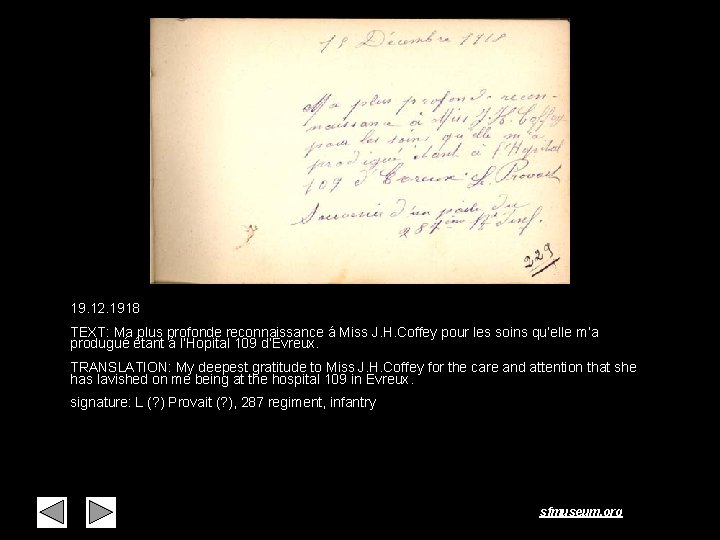 19 Décembre 1918
Ma plus profonde recon-
naissance à Miss J. H. Coffey
pour les soins qu'elle m'a
prodigué étant à l'Hopital
109 d'Evreux. L. Provost
Souvenir d'un poilu du
287ème Rt d'Inf.
229
19.12.1918
TEXT: Ma plus profonde reconnaissance á Miss J.H.Coffey pour les soins qu'elle m'a
produgué étant à l'Hopital 109 d'Evreux.
TRANSLATION: My deepest gratitude to Miss J.H.Coffey for the care and attention that she
has lavished on me being at the hospital 109 in Evreux.
signature: L (?) Provait (?), 287 regiment, infantry
sfmuseum.org